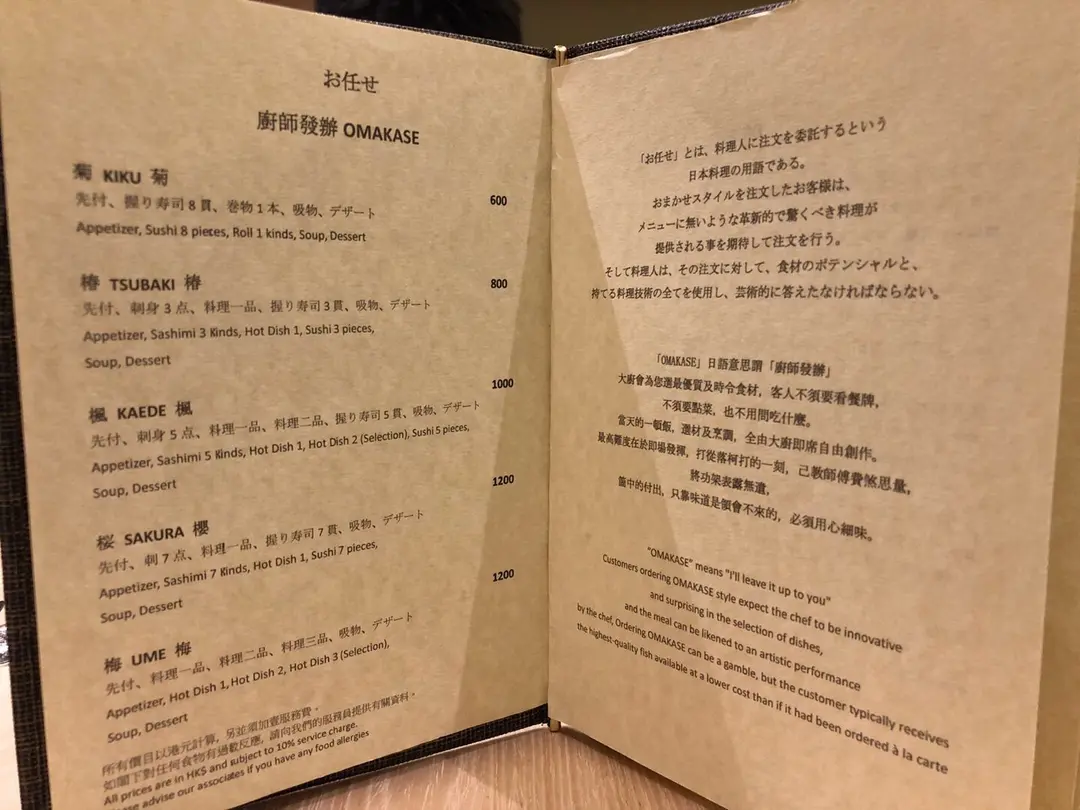 お任せ
廚師發辦 OMAKASE
菊 KIKU 菊
先付、握り寿司8貫、巻物1本、吸物、デザート 600
Appetizer, Sushi 8 pieces, Roll 1 kinds, Soup, Dessert
椿 TSUBAKI 椿 800
先付、刺身3点、料理一品、握り寿司3貫、吸物、デザート
Appetizer, Sashimi 3 Kinds, Hot Dish 1, Sushi 3 pieces,
Soup, Dessert
楓 KAEDE 楓 1000
先付、刺身5点、料理一品、料理二品、握り寿司5貫、吸物、デザート
Appetizer, Sashimi 5 Kinds, Hot Dish 1, Hot Dish 2 (Selection), Sushi 5 pieces,
Soup, Dessert
桜 SAKURA 櫻 1200
先付、刺7点、料理一品、握り寿司7貫、吸物、デザート
Appetizer, Sashimi 7 Kinds, Hot Dish 1, Sushi 7 pieces,
Soup, Dessert
梅 UME 梅 1200
先付、料理一品、料理二品、料理三品、吸物、デザート
Appetizer, Hot Dish 1, Hot Dish 2, Hot Dish 3 (Selection),
Soup, Dessert
所有價目以港元計算，另並須加壹服務費。
如閣下對任何食物有過敏反應，請向我們的服務員提供有關資料。
All prices are in HK$ and subject to 10% service charge.
Please advise our associates if you have any food allergies
「お任せ」とは、料理人に注文を委託するという
日本料理の用語である。
おまかせスタイルを注文したお客様は、
メニューに無いような革新的で驚くべき料理が
提供される事を期待して注文を行う。
そして料理人は、その注文に対して、食材のポテンシャルと、
持てる料理技術の全てを使用し、芸術的に答えたなければならない。
「OMAKASE」日語意思謂「廚師發辦」
大廚會為您選最優質及時令食材，客人不須要看餐牌，
不須要點菜，也不用問吃什麼。
當天的一頓飯，選材及烹調，全由大廚即席自由創作。
最高難度在於即場發揮，打從落柯打的一刻，己教師傅費煞思量，
將功架表露無遺，
箇中的付出，只靠味道是領會不來的，必須用心細味。
"OMAKASE" means "I'll leave it up to you"
Customers ordering OMAKASE style expect the chef to be innovative
and surprising in the selection of dishes,
and the meal can be likened to an artistic performance
by the chef, Ordering OMAKASE can be a gamble, but the customer typically receives
the highest-quality fish available at a lower cost than if it had been ordered à la carte